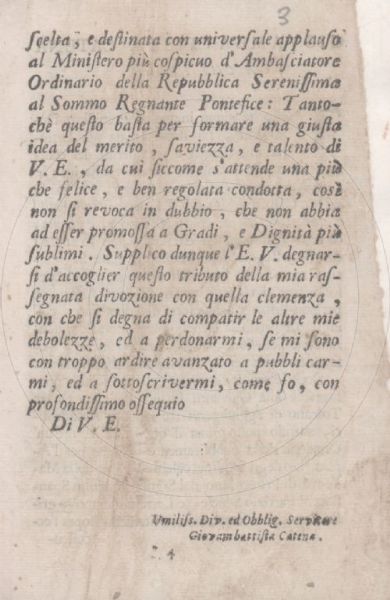 3
ſcelta, e deſtinata con univerſale applauſo
al Miniſtero più coſpicuo d'Ambaſciatore
Ordinario della Repubblica Sereniſſima
al Sommo Regnante Pontefice: Tanto-
chè queſto baſta per formare una giuſta
idea del merito, ſaviezza, e talento di
V. E., da cui ſiccome s'attende una più
che felice, e ben regolata condotta, così
non ſi revoca in dubbio, che non abbia
ad eſſer promoſſa a Gradi, e Dignità più
ſublimi. Supplico dunque l'E. V. degnar-
ſi d'accoglier queſto tributo della mia raſ-
ſegnata divozione con quella clemenza,
con che ſi degna di compatir le altre mie
debolezze, ed a perdonarmi, ſe mi ſono
con troppo ardire avanzato a pubbli car-
mi, ed a ſottoſcrivermi, come fo, con
profondiſſimo oſſequio
Di V. E.
Umiliſs. Div. ed Obblig. Servitore
Giovambattiſta Catena.
4